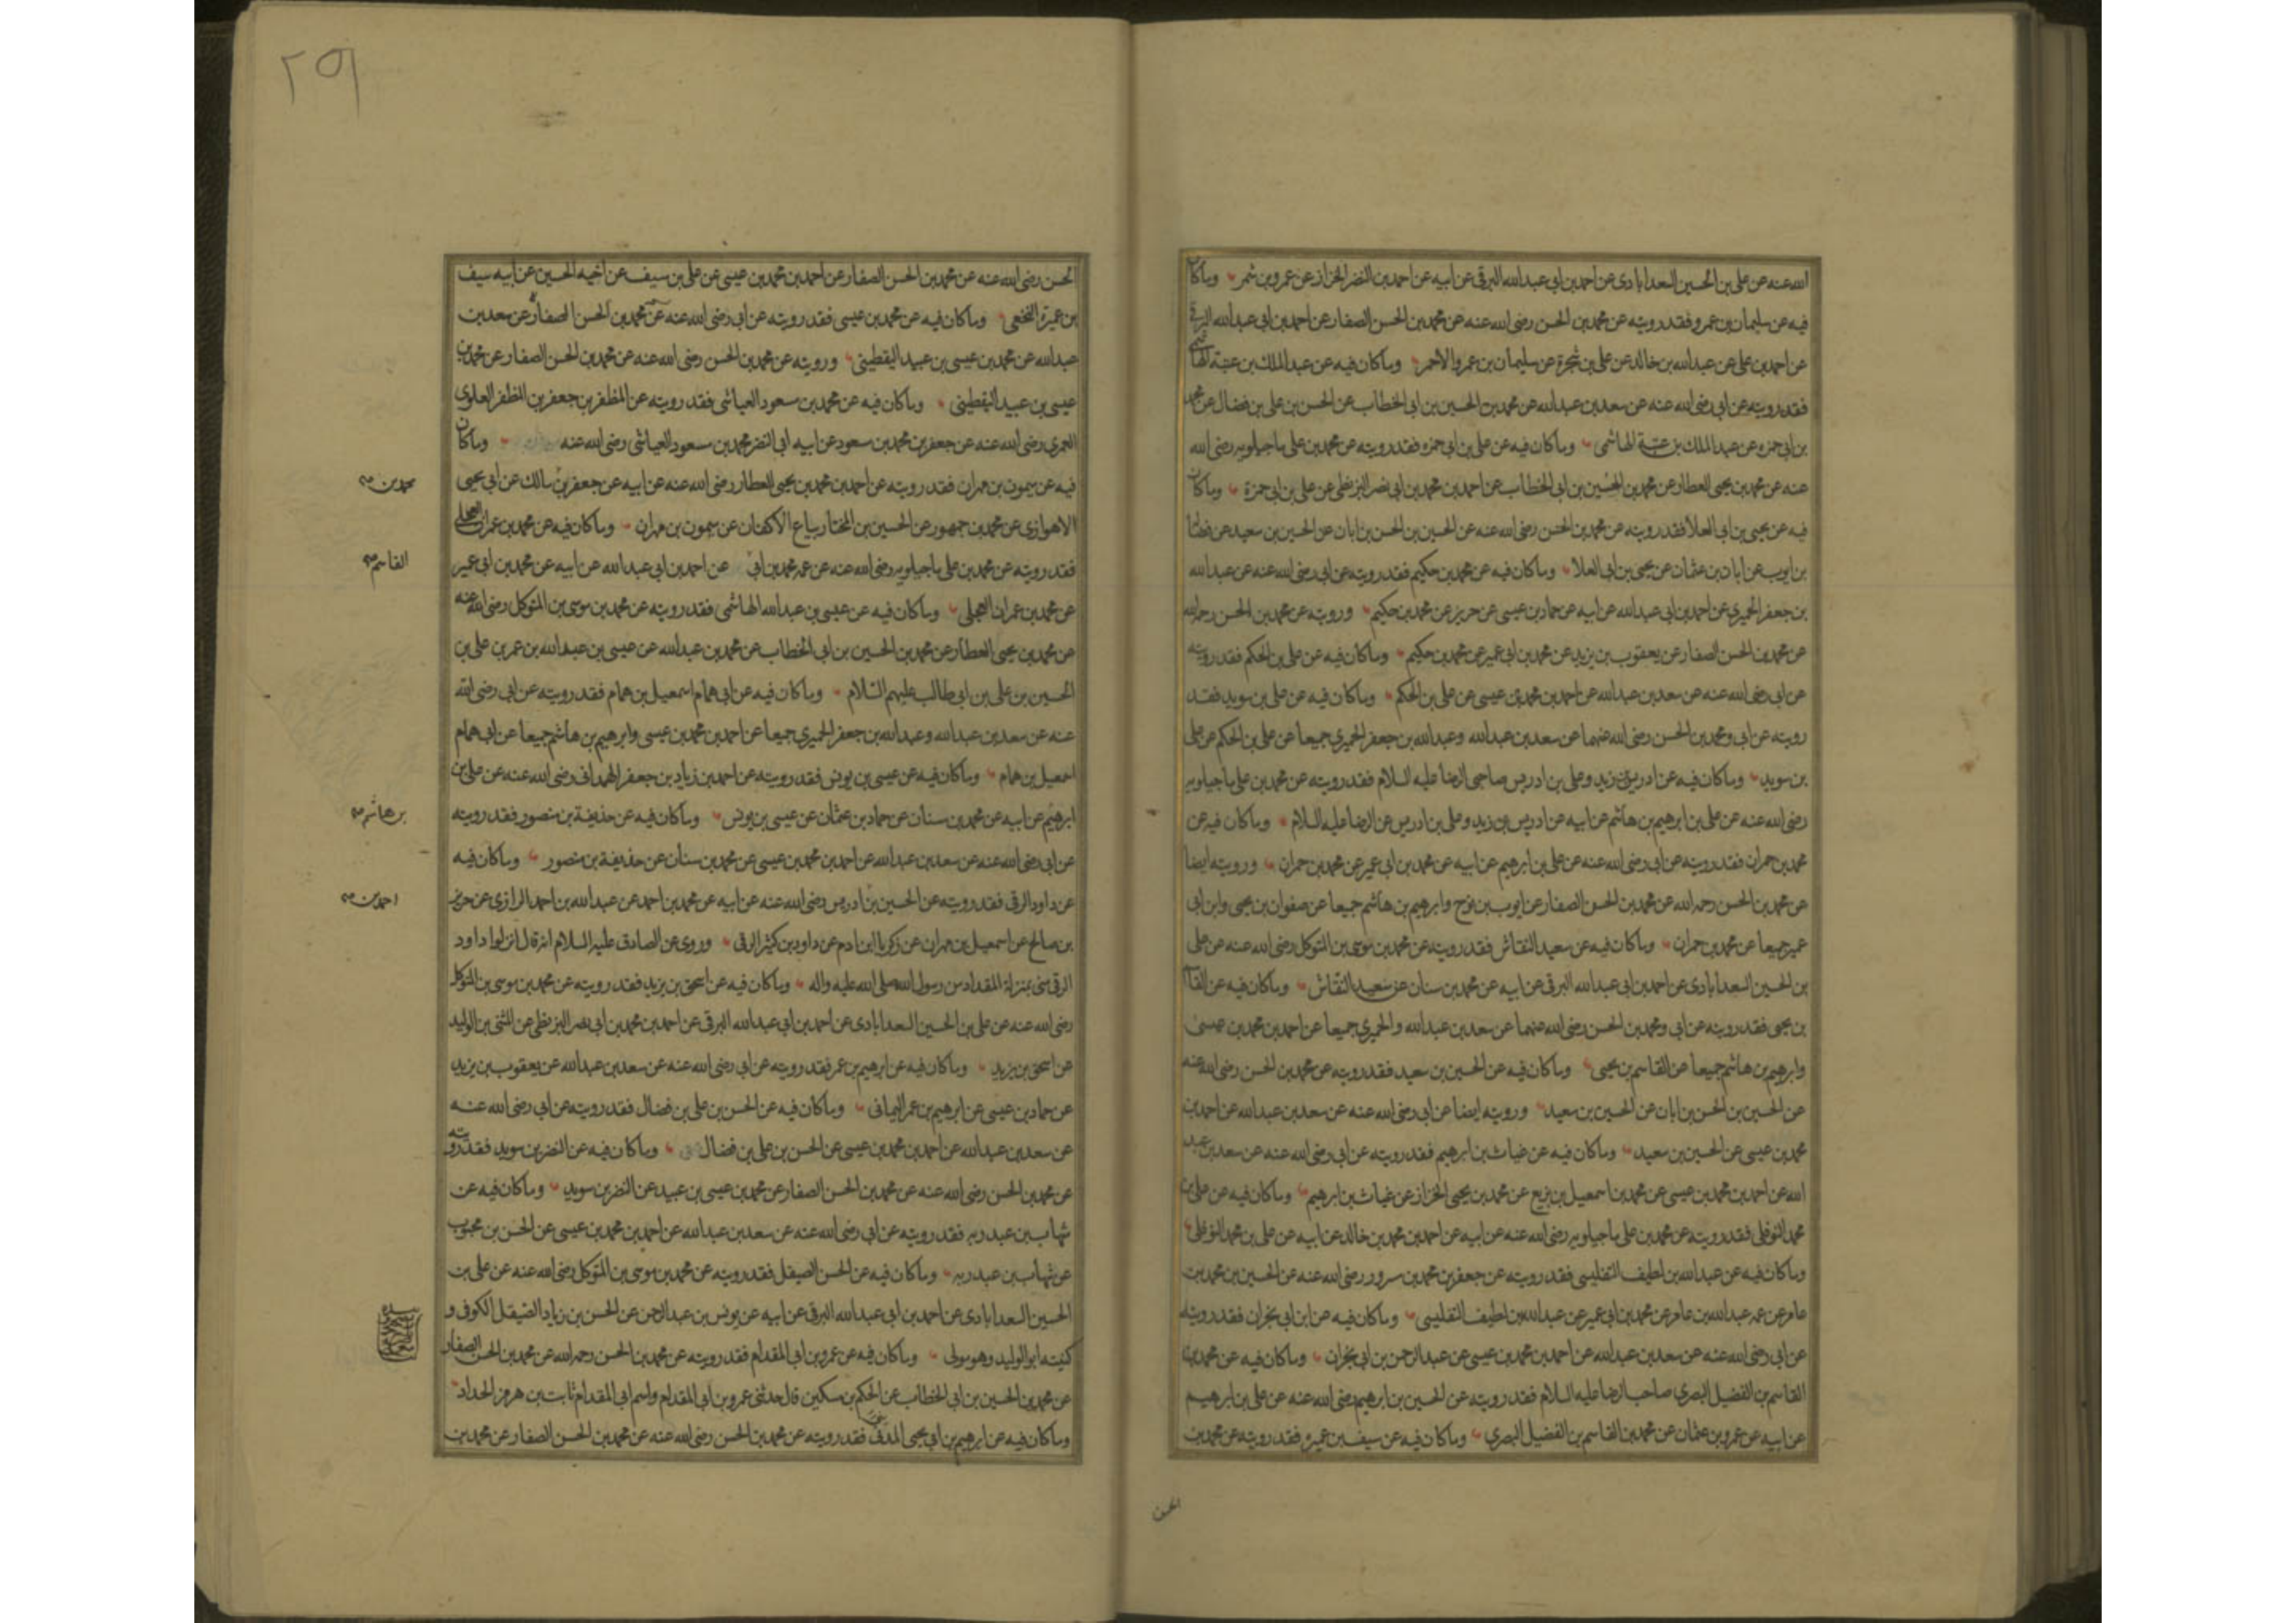 الله عنه عن علی بن الحسین السعدابادی عن احمد بن ابی عبدالله البرقی عن ابیه عن احمد بن النضر الخزاز عن عمرو بن شمر وما کان
فیه عن سلیمان بن عمرو فقد رویته عن محمد بن الحسن رضی الله عنه عن محمد بن الحسن الصفار عن احمد بن ابی عبدالله البرقی
عن احمد بن علی عن عبدالله بن خالد عن علی بن شجرة عن سلیمان بن عمرو الاحمر وما کان فیه عن عبدالملک بن عتبة الهاشمی
فقد رویته عن ابی رضی الله عنه عن سعد بن عبدالله عن محمد بن الحسین بن ابی الخطاب عن الحسن بن علی بن فضال عن محمد
بن ابی حمزه عن عبدالملک بن عتبة الهاشمی وما کان فیه عن علی بن ابی حمزه فقد رویته عن محمد بن علی ماجیلویه رضی الله
عنه عن محمد بن یحیی العطار عن محمد بن الحسین بن ابی الخطاب عن احمد بن محمد بن ابی نصر البزنطی عن علی بن ابی حمزة وما کان
فیه عن یحیی بن ابی العلا فقد رویته عن محمد بن الحسن رضی الله عنه عن الحسین بن الحسن بن ابان عن الحسین بن سعید عن فضالة
بن ایوب عن ابان بن عثمان عن یحیی بن ابی العلا وما کان فیه عن محمد بن حکیم فقد رویته عن ابی رضی الله عنه عن عبدالله
بن جعفر الحمیری عن احمد بن ابی عبدالله عن ابیه عن حماد بن عیسی عن حریز عن محمد بن حکیم ورویته عن محمد بن الحسن رحمه الله
عن محمد بن الحسن الصفار عن یعقوب بن یزید عن محمد بن ابی عمیر عن محمد بن حکیم وما کان فیه عن علی بن الحکم فقد رویته
عن ابی رضی الله عنه عن سعد بن عبدالله عن احمد بن محمد بن عیسی عن علی بن الحکم وما کان فیه عن علی بن سوید فقد
رویته عن ابی ومحمد بن الحسن رضی الله عنهما عن سعد بن عبدالله وعبدالله بن جعفر الحمیری جمیعا عن علی بن الحکم عن علی
بن سوید وما کان فیه عن ادریس بن زید وعلی بن ادریس صاحبی الرضا علیه السلام فقد رویته عن محمد بن علی ماجیلویه
رضی الله عنه عن علی بن ابرهیم بن هاشم عن ابیه عن ادریس بن زید وعلی بن ادریس عن الرضا علیه السلام وما کان فیه عن
محمد بن حمران فقد رویته عن ابی رضی الله عنه عن علی بن ابرهیم عن ابیه عن محمد بن ابی عمیر عن محمد بن حمران ورویته ایضا
عن محمد بن الحسن رحمه الله عن محمد بن الحسن الصفار عن ایوب بن نوح وابرهیم بن هاشم جمیعا عن صفوان بن یحیی وابن ابی
عمیر جمیعا عن محمد بن حمران وما کان فیه عن سعید النقاش فقد رویته عن محمد بن موسی بن المتوکل رضی الله عنه عن علی
بن الحسین السعدابادی عن احمد بن ابی عبدالله البرقی عن ابیه عن محمد بن سنان عن سعید النقاش وما کان فیه عن القاسم
بن یحیی فقد رویته عن ابی ومحمد بن الحسن رضی الله عنهما عن سعد بن عبدالله والحمیری جمیعا عن احمد بن محمد بن عیسی
وابرهیم بن هاشم جمیعا عن القاسم بن یحیی وما کان فیه عن الحسین بن سعید فقد رویته عن محمد بن الحسن رضی الله عنه
عن الحسین بن الحسن بن ابان عن الحسین بن سعید ورویته ایضا عن ابی رضی الله عنه عن سعد بن عبدالله عن احمد بن
محمد بن عیسی عن الحسین بن سعید وما کان فیه عن غیاث بن ابرهیم فقد رویته عن ابی رضی الله عنه عن سعد بن عبد
الله عن احمد بن محمد بن عیسی عن محمد بن اسمعیل بن بزیع عن محمد بن یحیی الخزاز عن غیاث بن ابرهیم وما کان فیه عن علی بن
محمد النوفلی فقد رویته عن محمد بن علی ماجیلویه رضی الله عنه عن ابیه عن احمد بن محمد بن خالد عن ابیه عن علی بن محمد النوفلی
وما کان فیه عن عبدالله بن لطیف التفلیسی فقد رویته عن جعفر بن محمد بن مسرور رضی الله عنه عن الحسین بن محمد بن
عامر عن عمه عبدالله بن عامر عن محمد بن ابی عمیر عن عبدالله بن لطیف التفلیسی وما کان فیه عن ابن ابی نجران فقد رویته
عن ابی رضی الله عنه عن سعد بن عبدالله عن احمد بن محمد بن عیسی عن عبدالرحمن بن ابی نجران وما کان فیه عن محمد بن
القاسم بن الفضیل البصری صاحب الرضا علیه السلام فقد رویته عن الحسین بن ابرهیم رضی الله عنه عن علی بن ابرهیم
عن ابیه عن عمرو بن عثمان عن محمد بن القاسم بن الفضیل البصری وما کان فیه عن سیف بن عمیره فقد رویته عن محمد بن
الحسن
٢٥٩
الحسن رضی الله عنه عن محمد بن الحسن الصفار عن احمد بن محمد بن عیسی عن علی بن سیف عن اخیه الحسین عن ابیه سیف
بن عمیرة النخعی وما کان فیه عن محمد بن عیسی فقد رویته عن ابی رضی الله عنه عن محمد بن الحسن الصفار عن سعد بن
عبدالله عن محمد بن عیسی بن عبید الیقطینی ورویته عن محمد بن الحسن رضی الله عنه عن محمد بن الحسن الصفار عن محمد بن
عیسی بن عبید الیقطینی وما کان فیه عن محمد بن مسعود العیاشی فقد رویته عن المظفر بن جعفر بن المظفر العلوی
العمری رضی الله عنه عن جعفر بن محمد بن مسعود عن ابیه ابی النضر محمد بن مسعود العیاشی رضی الله عنه وما کان
فیه عن میمون بن مهران فقد رویته عن احمد بن محمد بن یحیی العطار رضی الله عنه عن ابیه عن جعفر بن مالک عن ابی یحیی
محمد بن
الاهوازی عن محمد بن جمهور عن الحسین بن المختار بیاع الاکفان عن میمون بن مهران وما کان فیه عن محمد بن عمران العجلی
فقد رویته عن محمد بن علی ماجیلویه رضی الله عنه عن عمه محمد بن ابی عن احمد بن ابی عبدالله عن ابیه عن محمد بن ابی عمیر
القاسم
عن محمد بن عمران العجلی وما کان فیه عن عیسی بن عبدالله الهاشمی فقد رویته عن محمد بن موسی بن المتوکل رضی الله عنه
عن محمد بن یحیی العطار عن محمد بن الحسین بن ابی الخطاب عن محمد بن عبدالله عن عیسی بن عبدالله بن عمر بن علی بن
الحسین بن علی بن ابی طالب علیهم السلام وما کان فیه عن ابی همام اسمعیل بن همام فقد رویته عن ابی رضی الله
عنه عن سعد بن عبدالله وعبدالله بن جعفر الحمیری جمیعا عن احمد بن محمد بن عیسی وابرهیم بن هاشم جمیعا عن ابی همام
اسمعیل بن همام وما کان فیه عن عیسی بن یونس فقد رویته عن احمد بن زیاد بن جعفر الهمدانی رضی الله عنه عن علی بن
ابرهیم عن ابیه عن محمد بن سنان عن حماد بن عثمان عن عیسی بن یونس وما کان فیه عن حذیفة بن منصور فقد رویته
بن هاشم
عن ابی رضی الله عنه عن سعد بن عبدالله عن احمد بن محمد بن عیسی عن محمد بن سنان عن حذیفة بن منصور وما کان فیه
عن داود الرقی فقد رویته عن الحسین بن ادریس رضی الله عنه عن ابیه عن محمد بن احمد عن عبدالله بن احمد الرازی عن حریز
احمد بن
بن صالح عن اسمعیل بن مهران عن زکریا ابن ادم عن داود بن کثیر الرقی وروی عن الصادق علیه السلام انه قال انزلوا داود
الرقی منی بمنزلة المقداد من رسول الله صلی الله علیه واله وما کان فیه عن اسحق بن یزید فقد رویته عن محمد بن موسی بن المتوکل
رضی الله عنه عن علی بن الحسین السعدابادی عن احمد بن ابی عبدالله البرقی عن احمد بن محمد بن ابی نصر البزنطی عن المثنی بن الولید
عن اسحق بن یزید وما کان فیه عن ابرهیم بن عمر فقد رویته عن ابی رضی الله عنه عن سعد بن عبدالله عن یعقوب بن یزید
عن حماد بن عیسی عن ابرهیم بن عمر الیمانی وما کان فیه عن الحسن بن علی بن فضال فقد رویته عن ابی رضی الله عنه
عن سعد بن عبدالله عن احمد بن محمد بن عیسی عن الحسن بن علی بن فضال وما کان فیه عن النضر بن سوید فقد رویته
عن محمد بن الحسن رضی الله عنه عن محمد بن الحسن الصفار عن محمد بن عیسی بن عبید عن النضر بن سوید وما کان فیه عن
شهاب بن عبد ربه فقد رویته عن ابی رضی الله عنه عن سعد بن عبدالله عن احمد بن محمد بن عیسی عن الحسن بن محبوب
عن شهاب بن عبد ربه وما کان فیه عن الحسن الصیقل فقد رویته عن محمد بن موسی بن المتوکل رضی الله عنه عن علی بن
الحسین السعدابادی عن احمد بن ابی عبدالله البرقی عن ابیه عن یونس بن عبدالرحمن عن الحسن بن زیاد الصیقل الکوفی و
کنیته ابو الولید وهو مولی وما کان فیه عن عمرو بن ابی المقدام فقد رویته عن محمد بن الحسن رحمه الله عن محمد بن الحسن الصفار
عن محمد بن الحسین بن ابی الخطاب عن الحکم بن مسکین قال حدثنی عمرو بن ابی المقدام واسم ابی المقدام ثابت بن هرمز الحداد
وما کان فیه عن ابرهیم بن ابی یحیی المدنی فقد رویته عن محمد بن الحسن رضی الله عنه عن محمد بن الحسن الصفار عن محمد بن